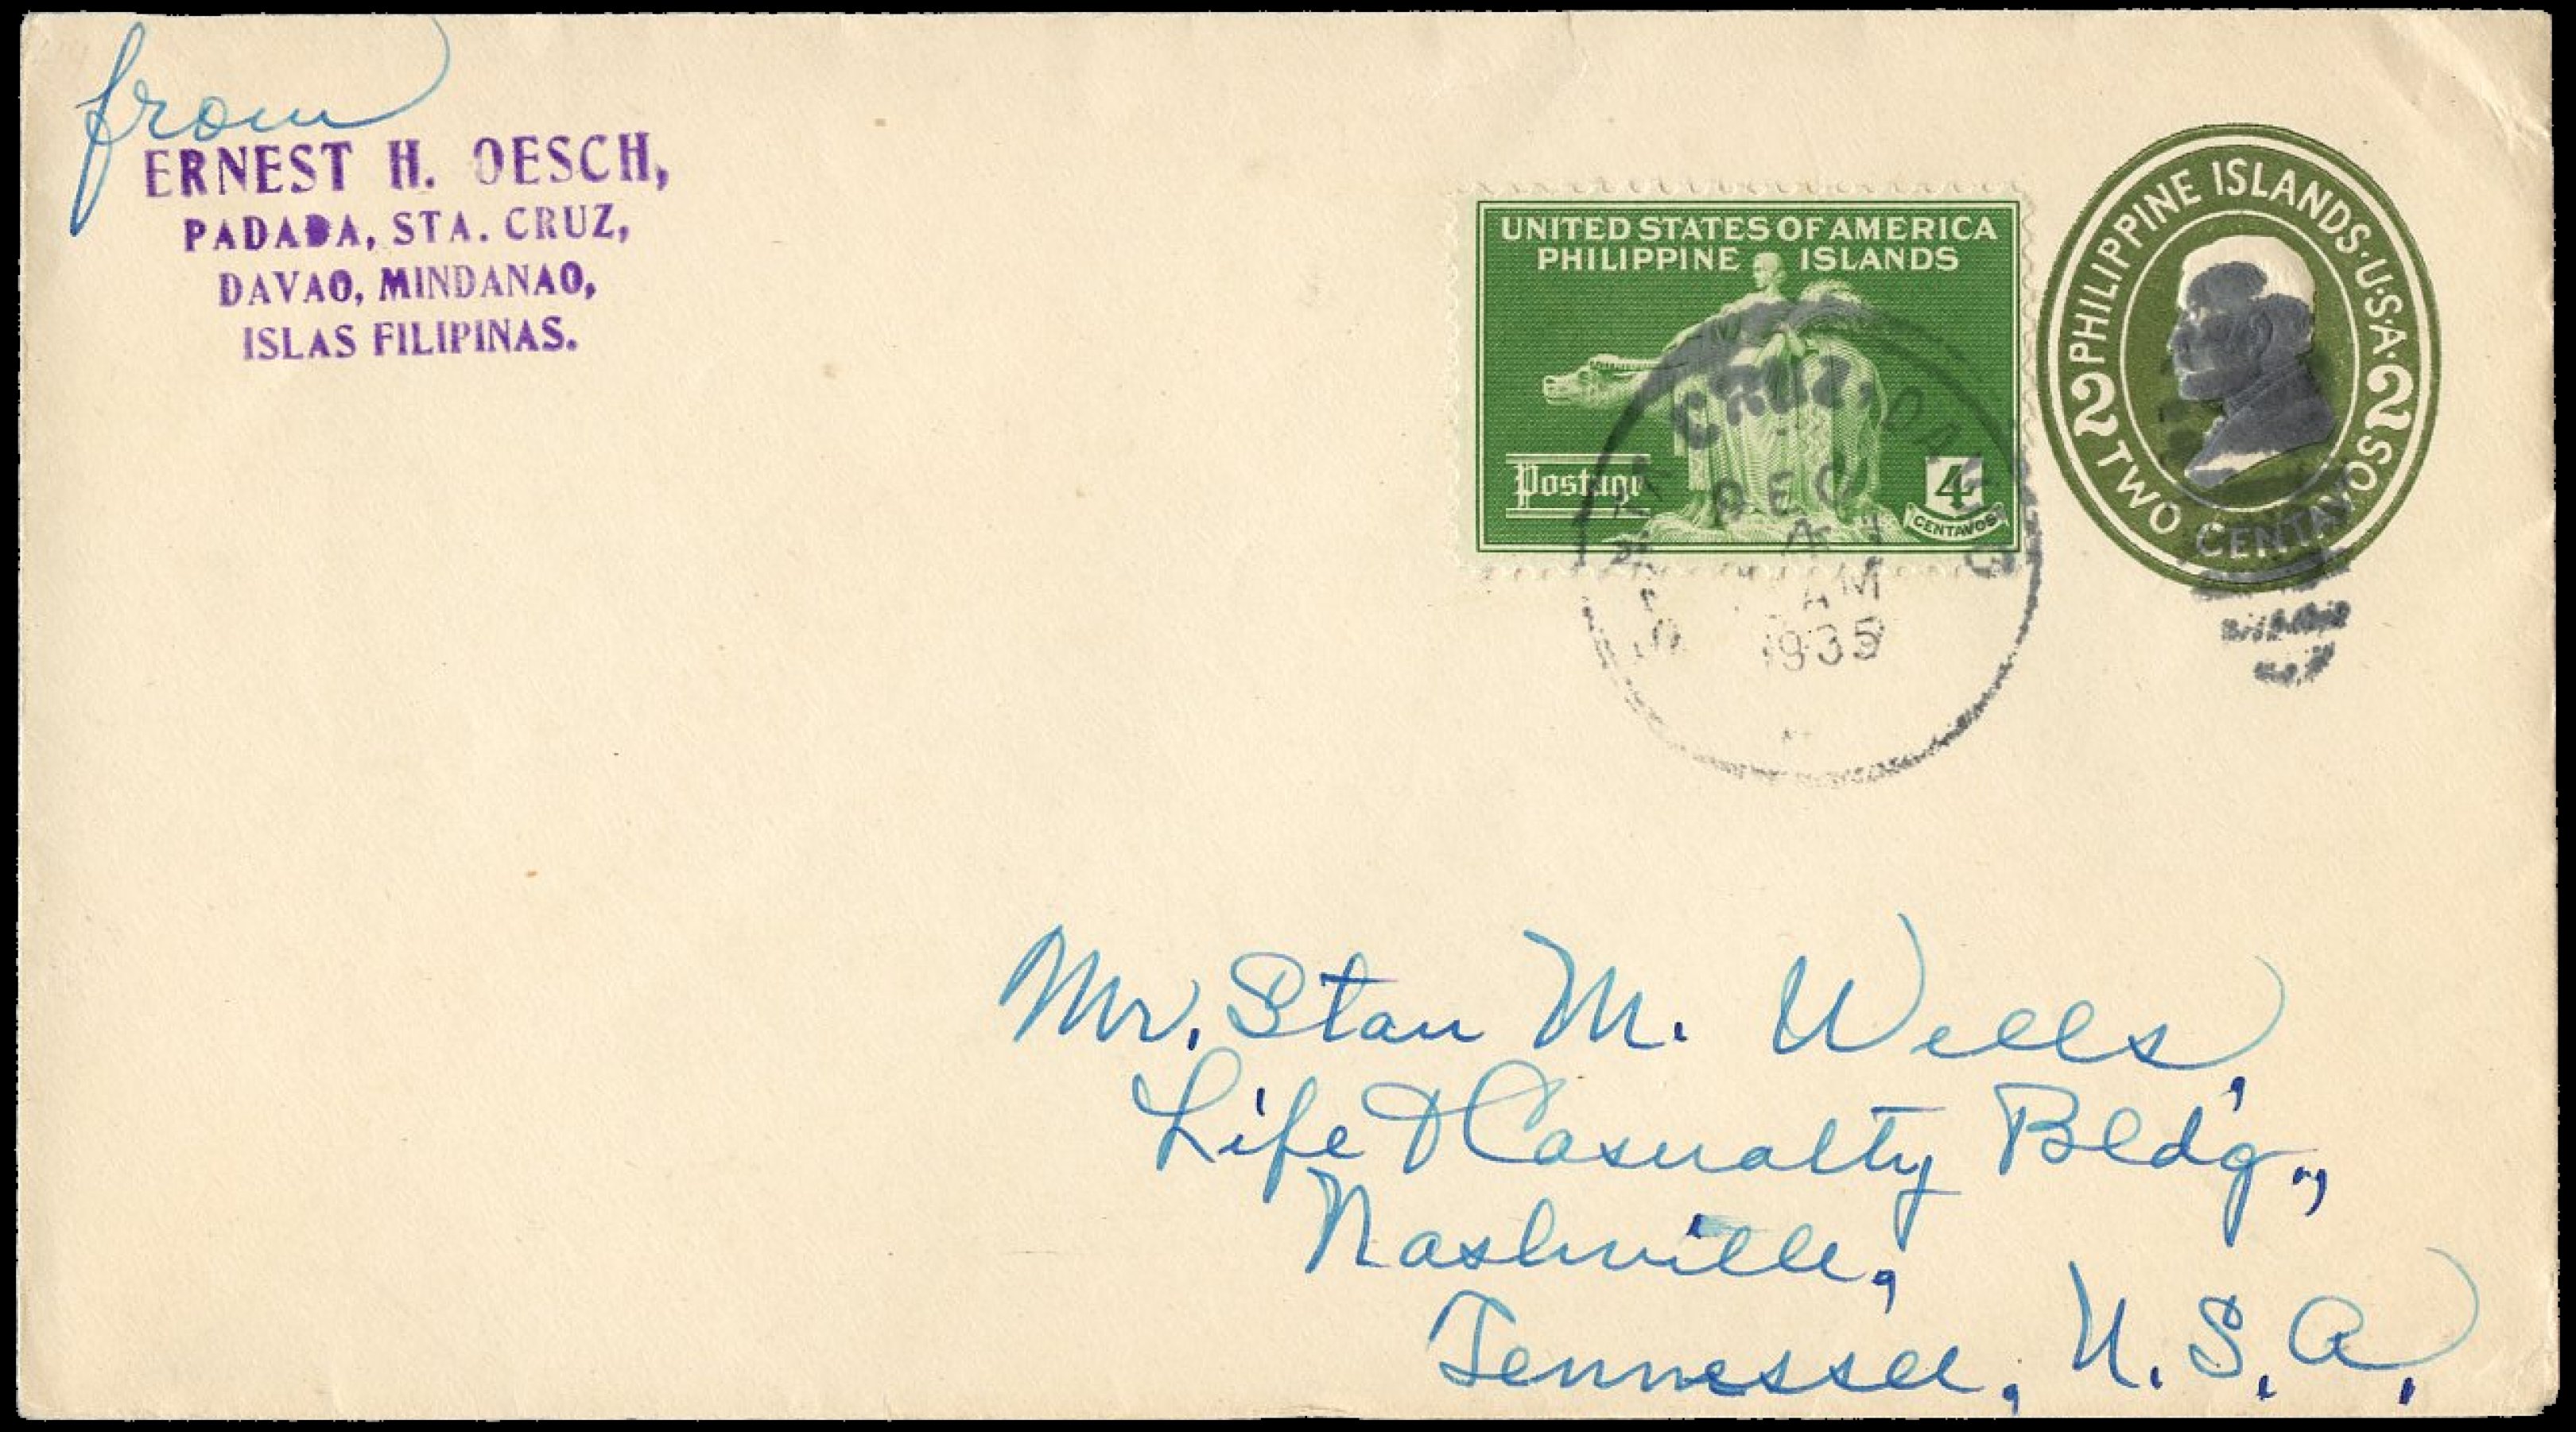 from
ERNEST H. OESCH,
PADADA, STA. CRUZ,
DAVAO, MINDANAO,
ISLAS FILIPINAS.
UNITED STATES OF AMERICA
PHILIPPINE ISLANDS
Postage
4
CENTAVOS
PHILIPPINE ISLANDS·U·S·A·
2 TWO CENTAVOS 2
CRUZ, DAVAO
DEC
AM
1935
Mr. Stan M. Wells,
Life & Casualty Bldg.,
Nashville,
Tennessee, U.S.A.